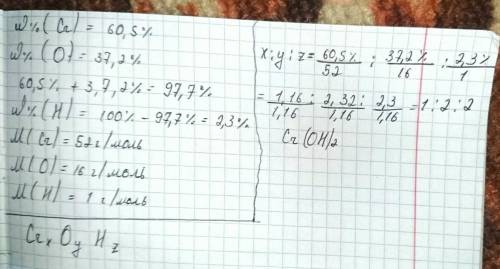 W%(Cr) = 60,5%
W%(O) = 37,2%
60,5% + 3,7,2% = 97,7%
W%(H) = 100% - 97,7% = 2,3%
M(Cr) = 52 г/моль
M(O) = 16 г/моль
M(H) = 1 г/моль
CrxOyHz
x : y : z = 60,5%/52 : 37,2%/16 : 2,3%/1
= 1,16/1,16 : 2,32/1,16 : 2,3/1,16 = 1 : 2 : 2
Cr(OH)2